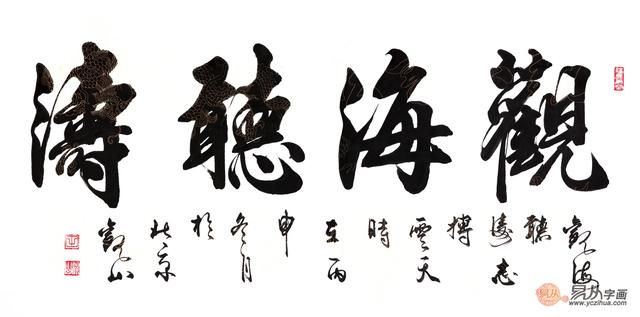 觀海聽濤
觀海聽濤志搏雲天時在丙申冬月於北京
易从
易从字画
www.yczihua.com